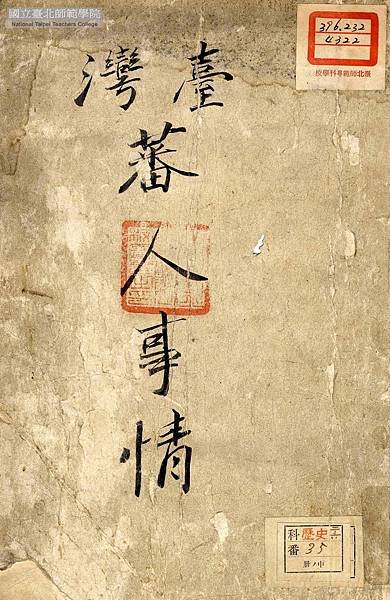 國立臺北師範學院
National Taipei Teachers College
396.232
4322
校學科專範師北臺
臺灣
蕃
人
事
情
科 歷史
番 35
冊ノ中